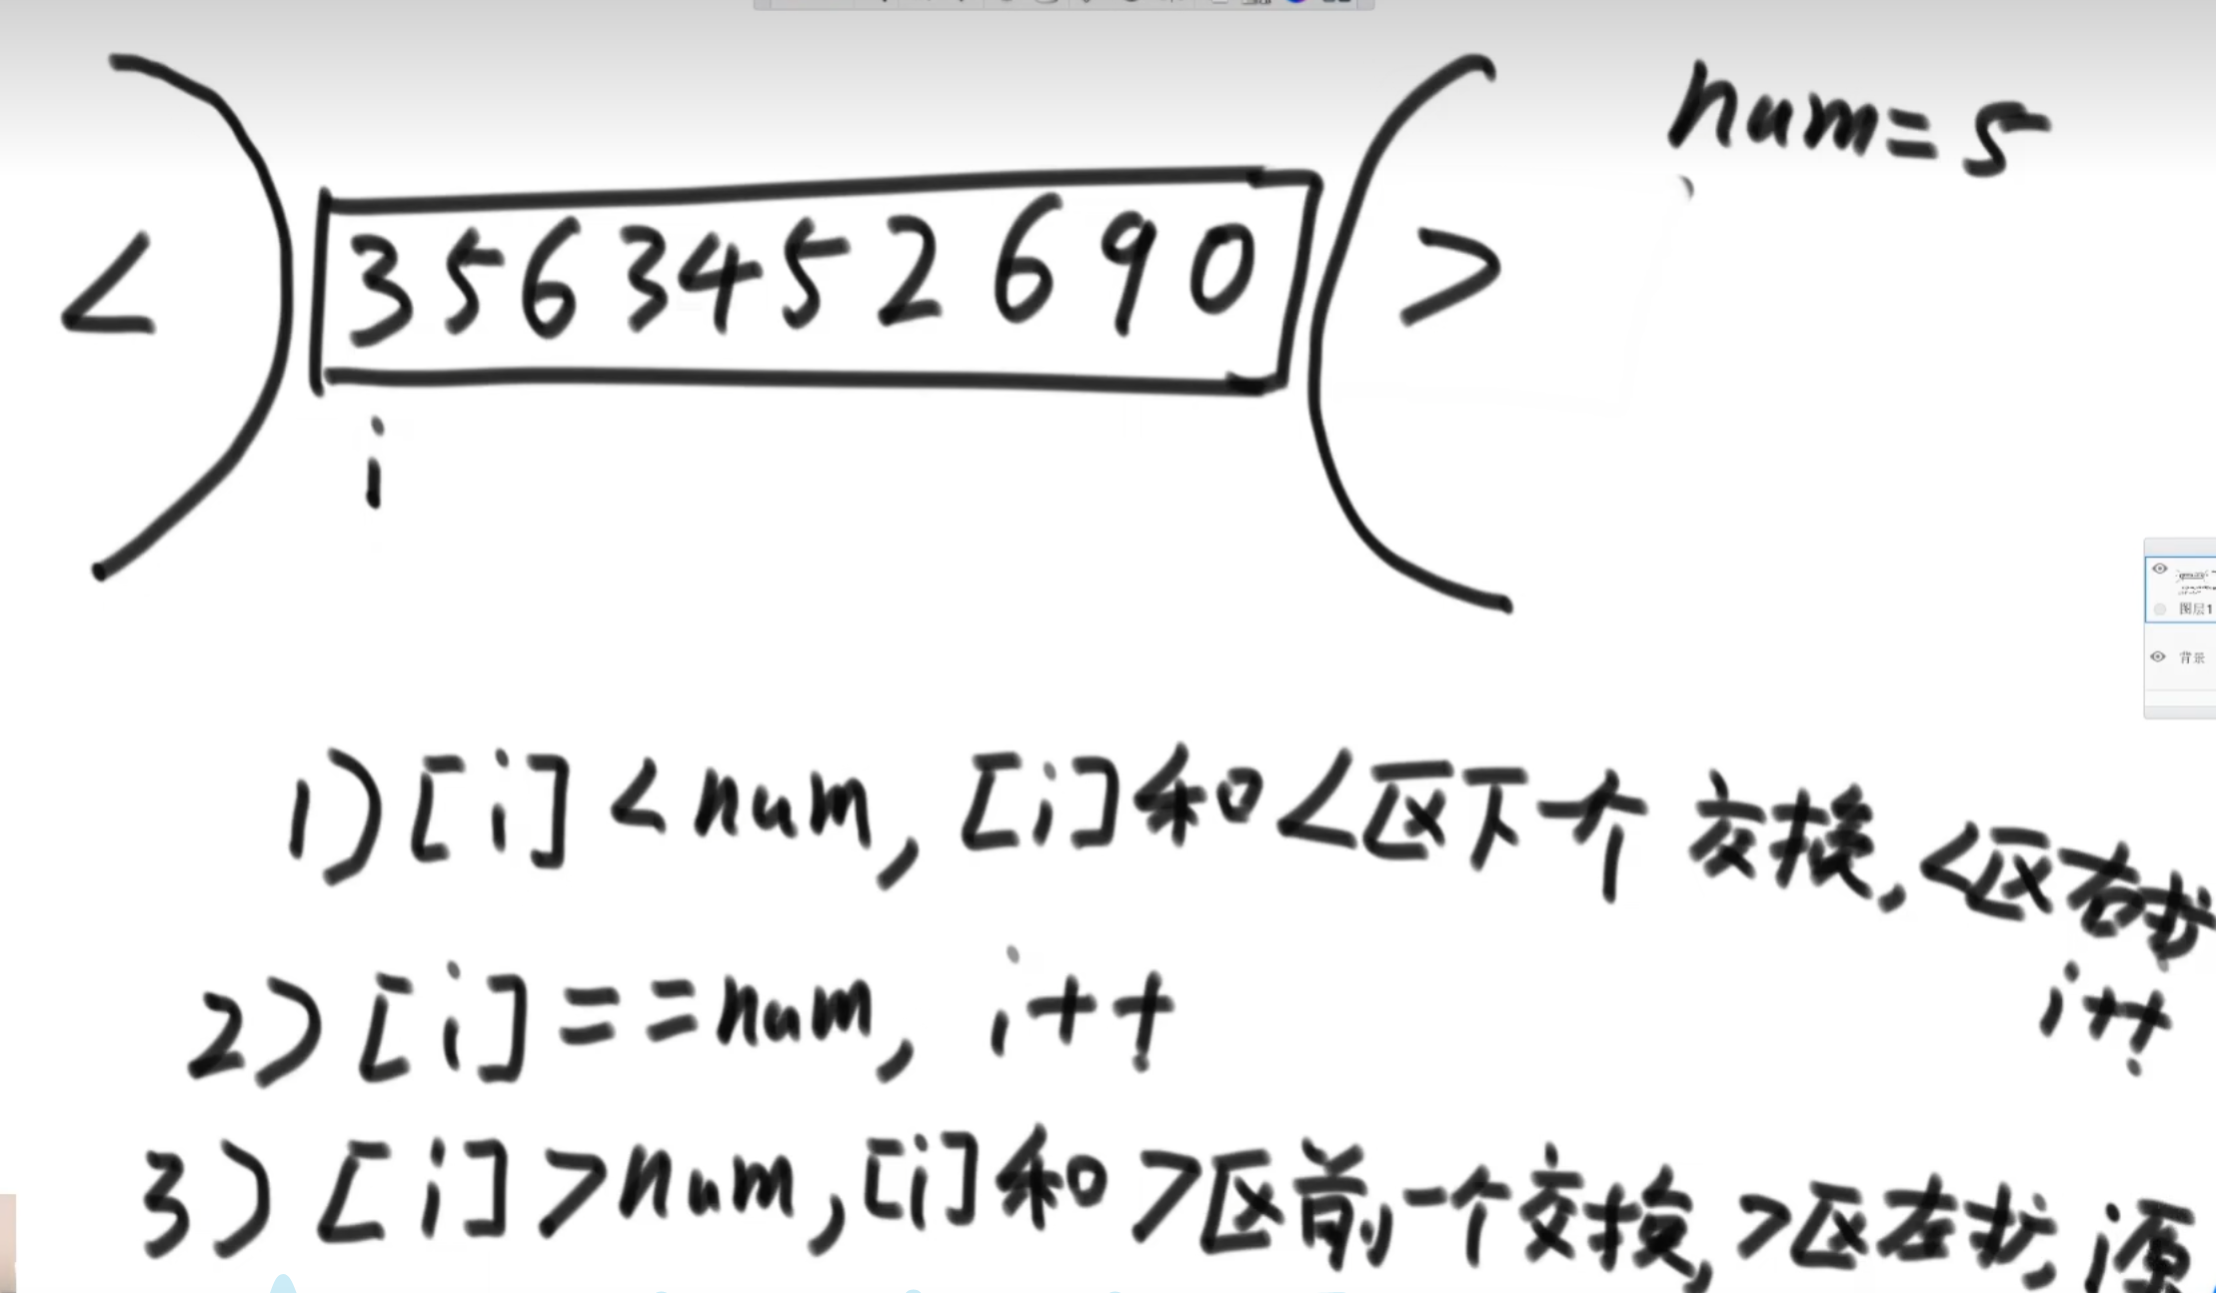 num=5
< 3 5 6 3 4 5 2 6 9 0 >
i
图层1
背景
1) [i] < num, [i]和<区下一个交换, <区右扩
i++
2) [i] == num, i++
3) [i] > num, [i]和>区前一个交换, >区左扩, i原